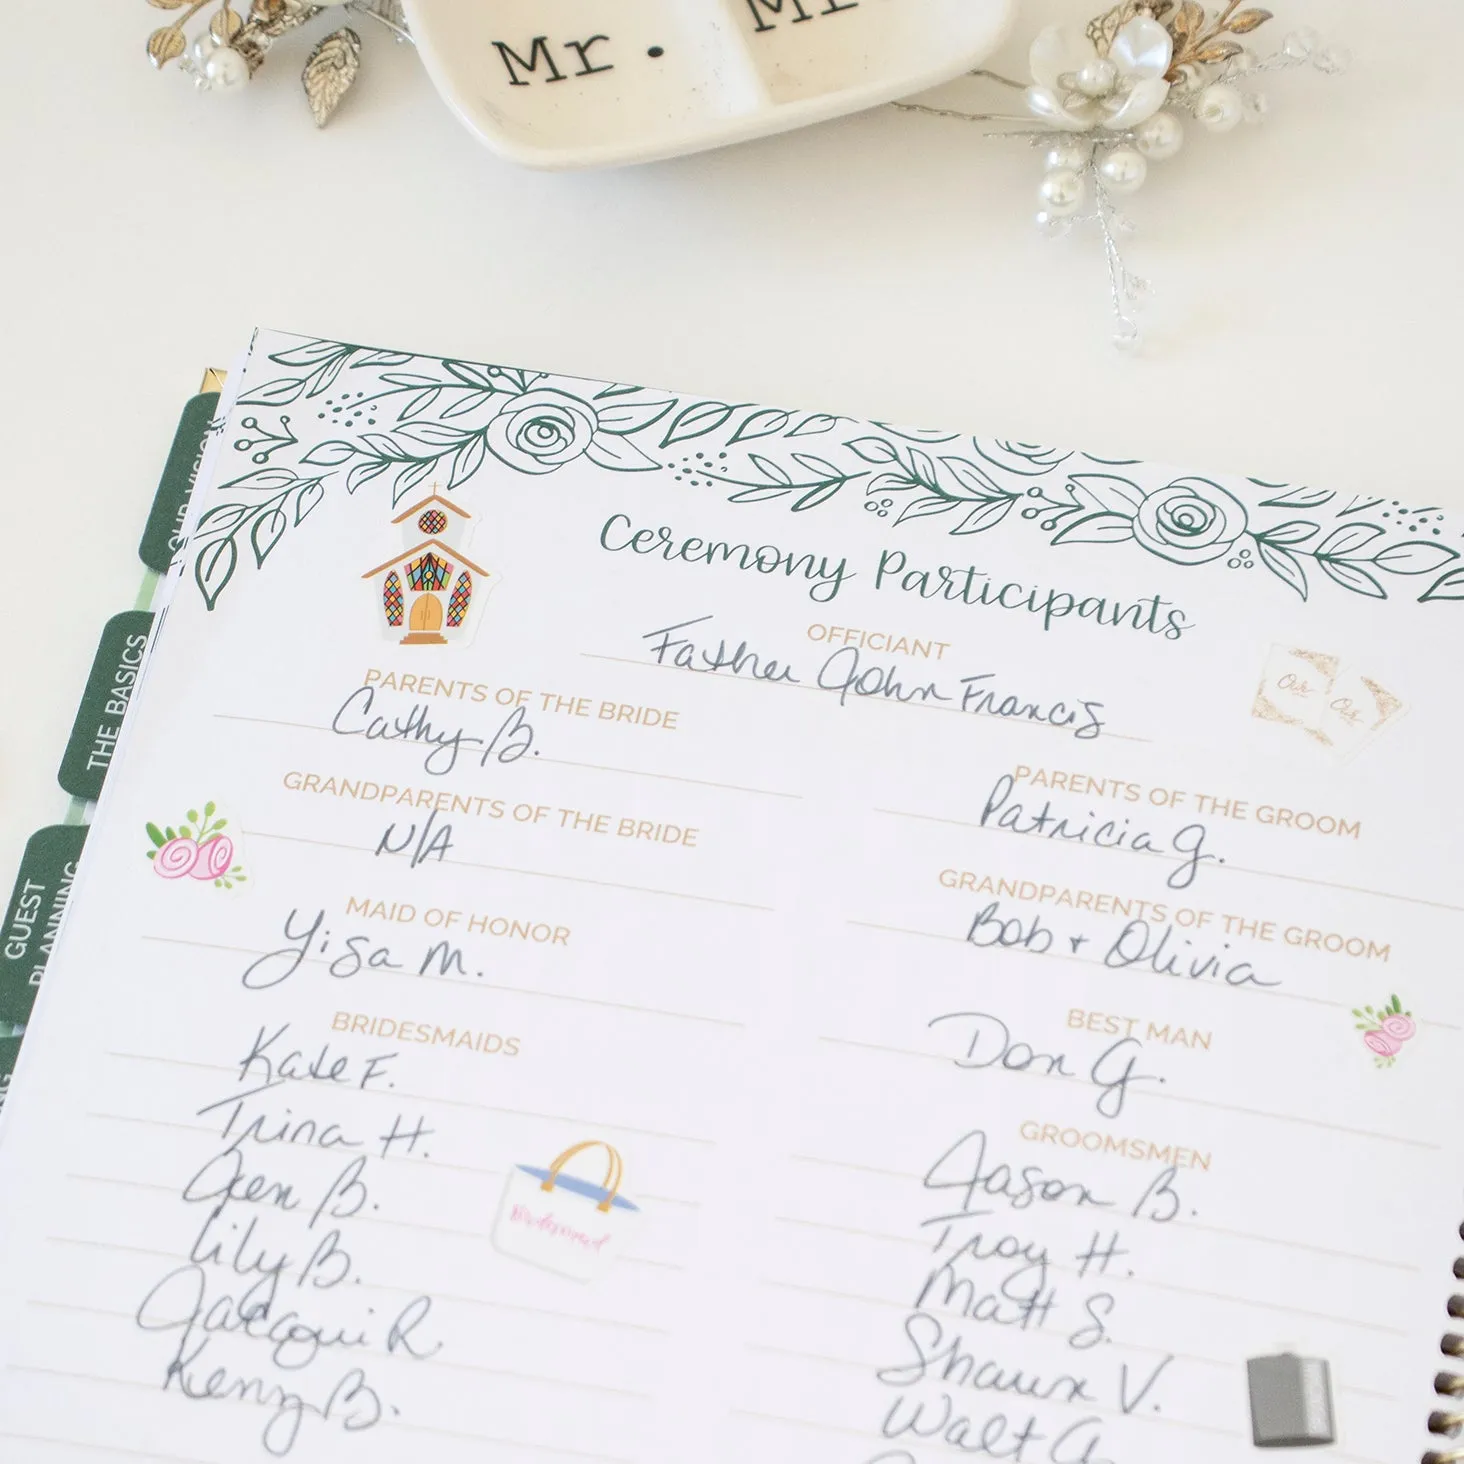 Mr.
Ceremony Participants
OFFICIANT
Father John Francis
PARENTS OF THE BRIDE
Cathy B.
PARENTS OF THE GROOM
Patricia G.
GRANDPARENTS OF THE BRIDE
N/A
GRANDPARENTS OF THE GROOM
Bob + Olivia
MAID OF HONOR
Yisa M.
BEST MAN
Don G.
BRIDESMAIDS
Kate F.
Trina H.
Jen B.
Lily B.
Jacqui R.
Kenzy B.
GROOMSMEN
Jason B.
Troy H.
Matt S.
Shaun V.
Walt
THE BASICS
GUEST
PLANNING
Our
Our
Bridesmaid